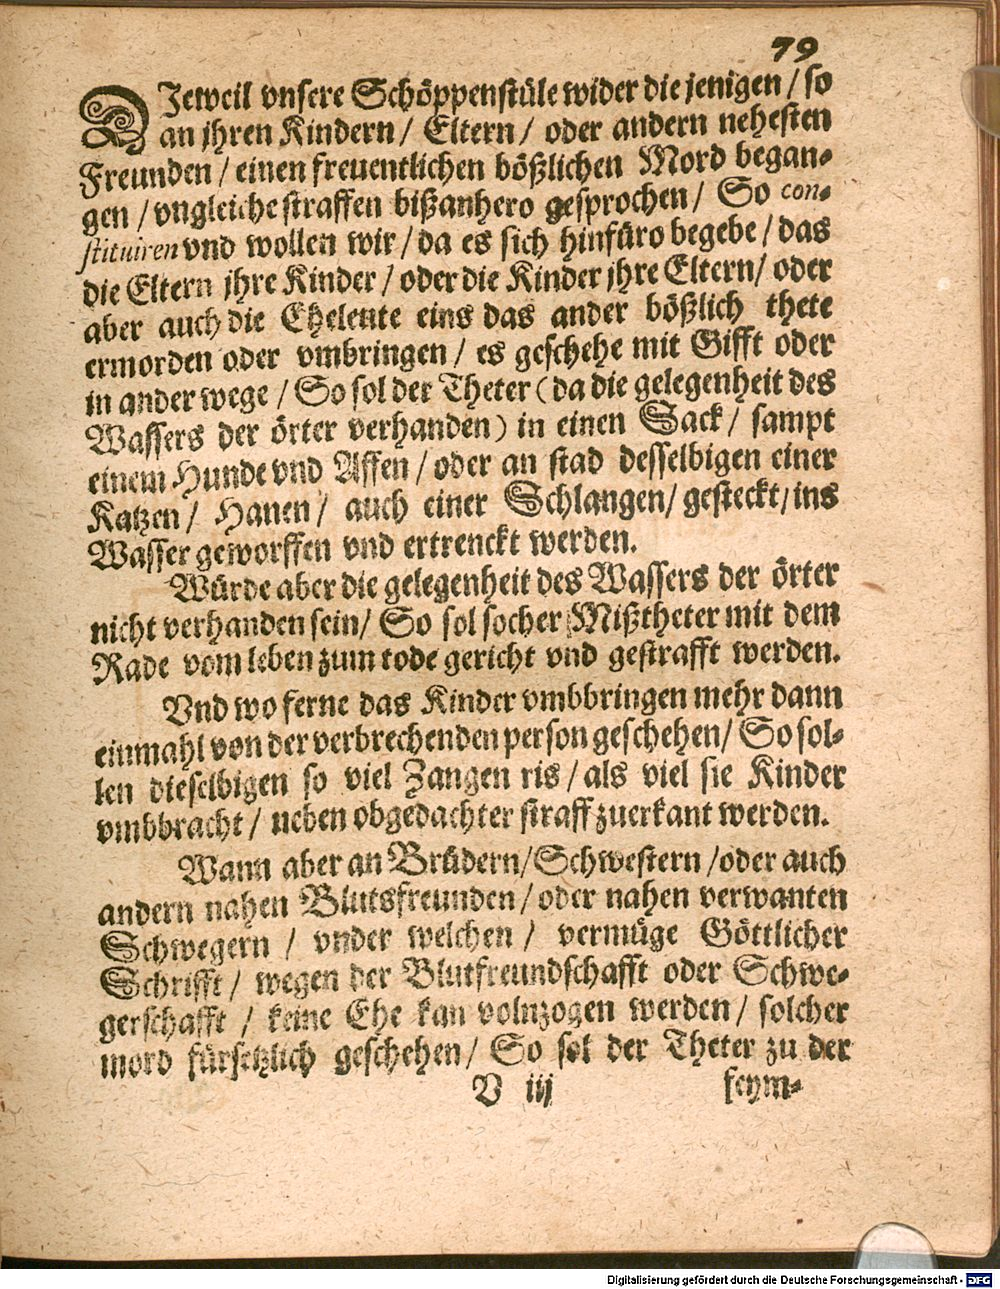 79
DJeweil vnsere Schöppenstüle wider die jenigen / so
an jhren Kindern / Eltern / oder andern nehesten
Freunden / einen freuentlichen bößlichen Mord began-
gen / vngleiche straffen bißanhero gesprochen / So con-
stituiren vnd wollen wir / da es sich hinfüro begebe / das
die Eltern jhre Kinder / oder die Kinder jhre Eltern / oder
aber auch die Eheleute eins das ander bößlich thete
ermorden oder vmbringen / es geschehe mit Gifft oder
in ander wege / So sol der Theter (da die gelegenheit des
Wassers der örter verhanden) in einen Sack / sampt
einem Hunde vnd Affen / oder an stad desselbigen einer
Katzen / Hanen / auch einer Schlangen / gesteckt / ins
Wasser geworffen vnd ertrenckt werden.
Würde aber die gelegenheit des Wassers der örter
nicht verhanden sein / So sol socher Mißtheter mit dem
Rade vom leben zum tode gericht vnd gestrafft werden.
Vnd wo ferne das Kinder vmbbringen mehr dann
einmahl von der verbrechenden person geschehen / So sol-
len dieselbigen so viel Zangen ris / als viel sie Kinder
vmbbracht / neben obgedachter straff zuerkant werden.
Wann aber an Brüdern / Schwestern / oder auch
andern nahen Blutsfreunden / oder nahen verwanten
Schwegern / vnder welchen / vermüge Göttlicher
Schrifft / wegen der Blutfreundschafft oder Schwe-
gerschafft / keine Ehe kan volnzogen werden / solcher
mord fürsetzlich geschehen / So sol der Theter zu der
V iij feym-
Digitalisierung gefördert durch die Deutsche Forschungsgemeinschaft - DFG